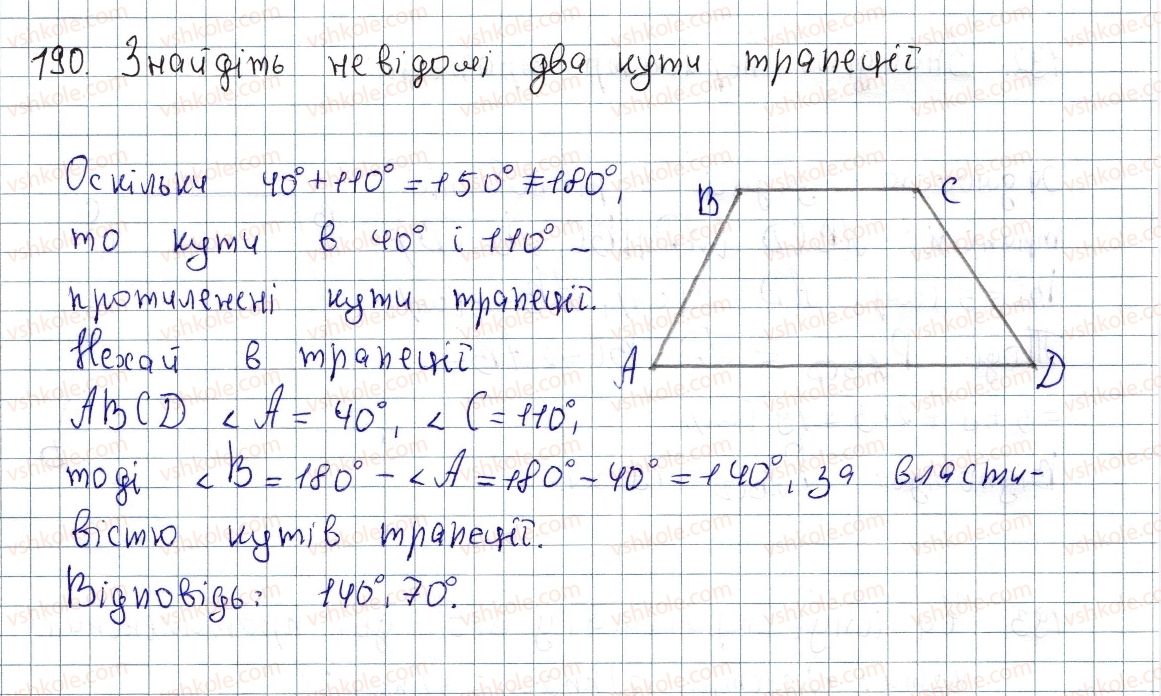 190. Знайдіть невідомі два кути трапеції
Оскільки 40° + 110° = 150° ≠ 180°,
то кути в 40° і 110° –
протилежні кути трапеції.
Нехай в трапеції
ABCD ∠A = 40°, ∠C = 110°,
тоді ∠B = 180° – ∠A = 180° – 40° = 140°, за власти-
вістю кутів трапеції.
Відповідь: 140°, 70°.
B C
A D